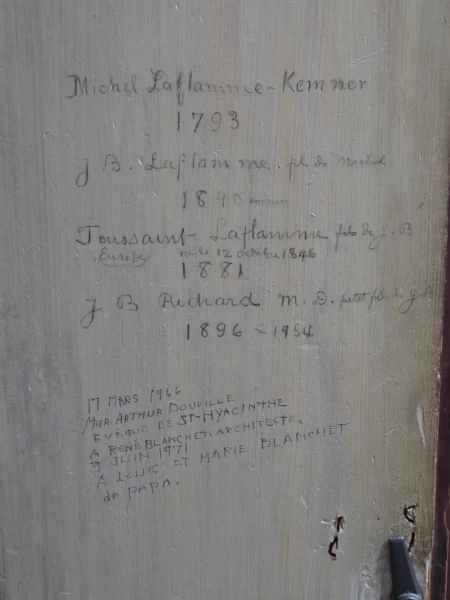 Michel Laflamme-Kemner
1793
J B. Laflamme. fils de Michel
1840 environ
Toussaint Laflamme fils de J. B
né le 12 octobre 1846
1881
J B Richard M. D. petit fils de J B
1896 - 1954
17 MARS 1966
MGR. ARTHUR DOUVILLE
EVÊQUE DE ST-HYACINTHE
A RENÉ BLANCHET. ARCHITECTE.
3 JUIN 1971
A LOUIS ET MARIE BLANCHET
de PAPA.